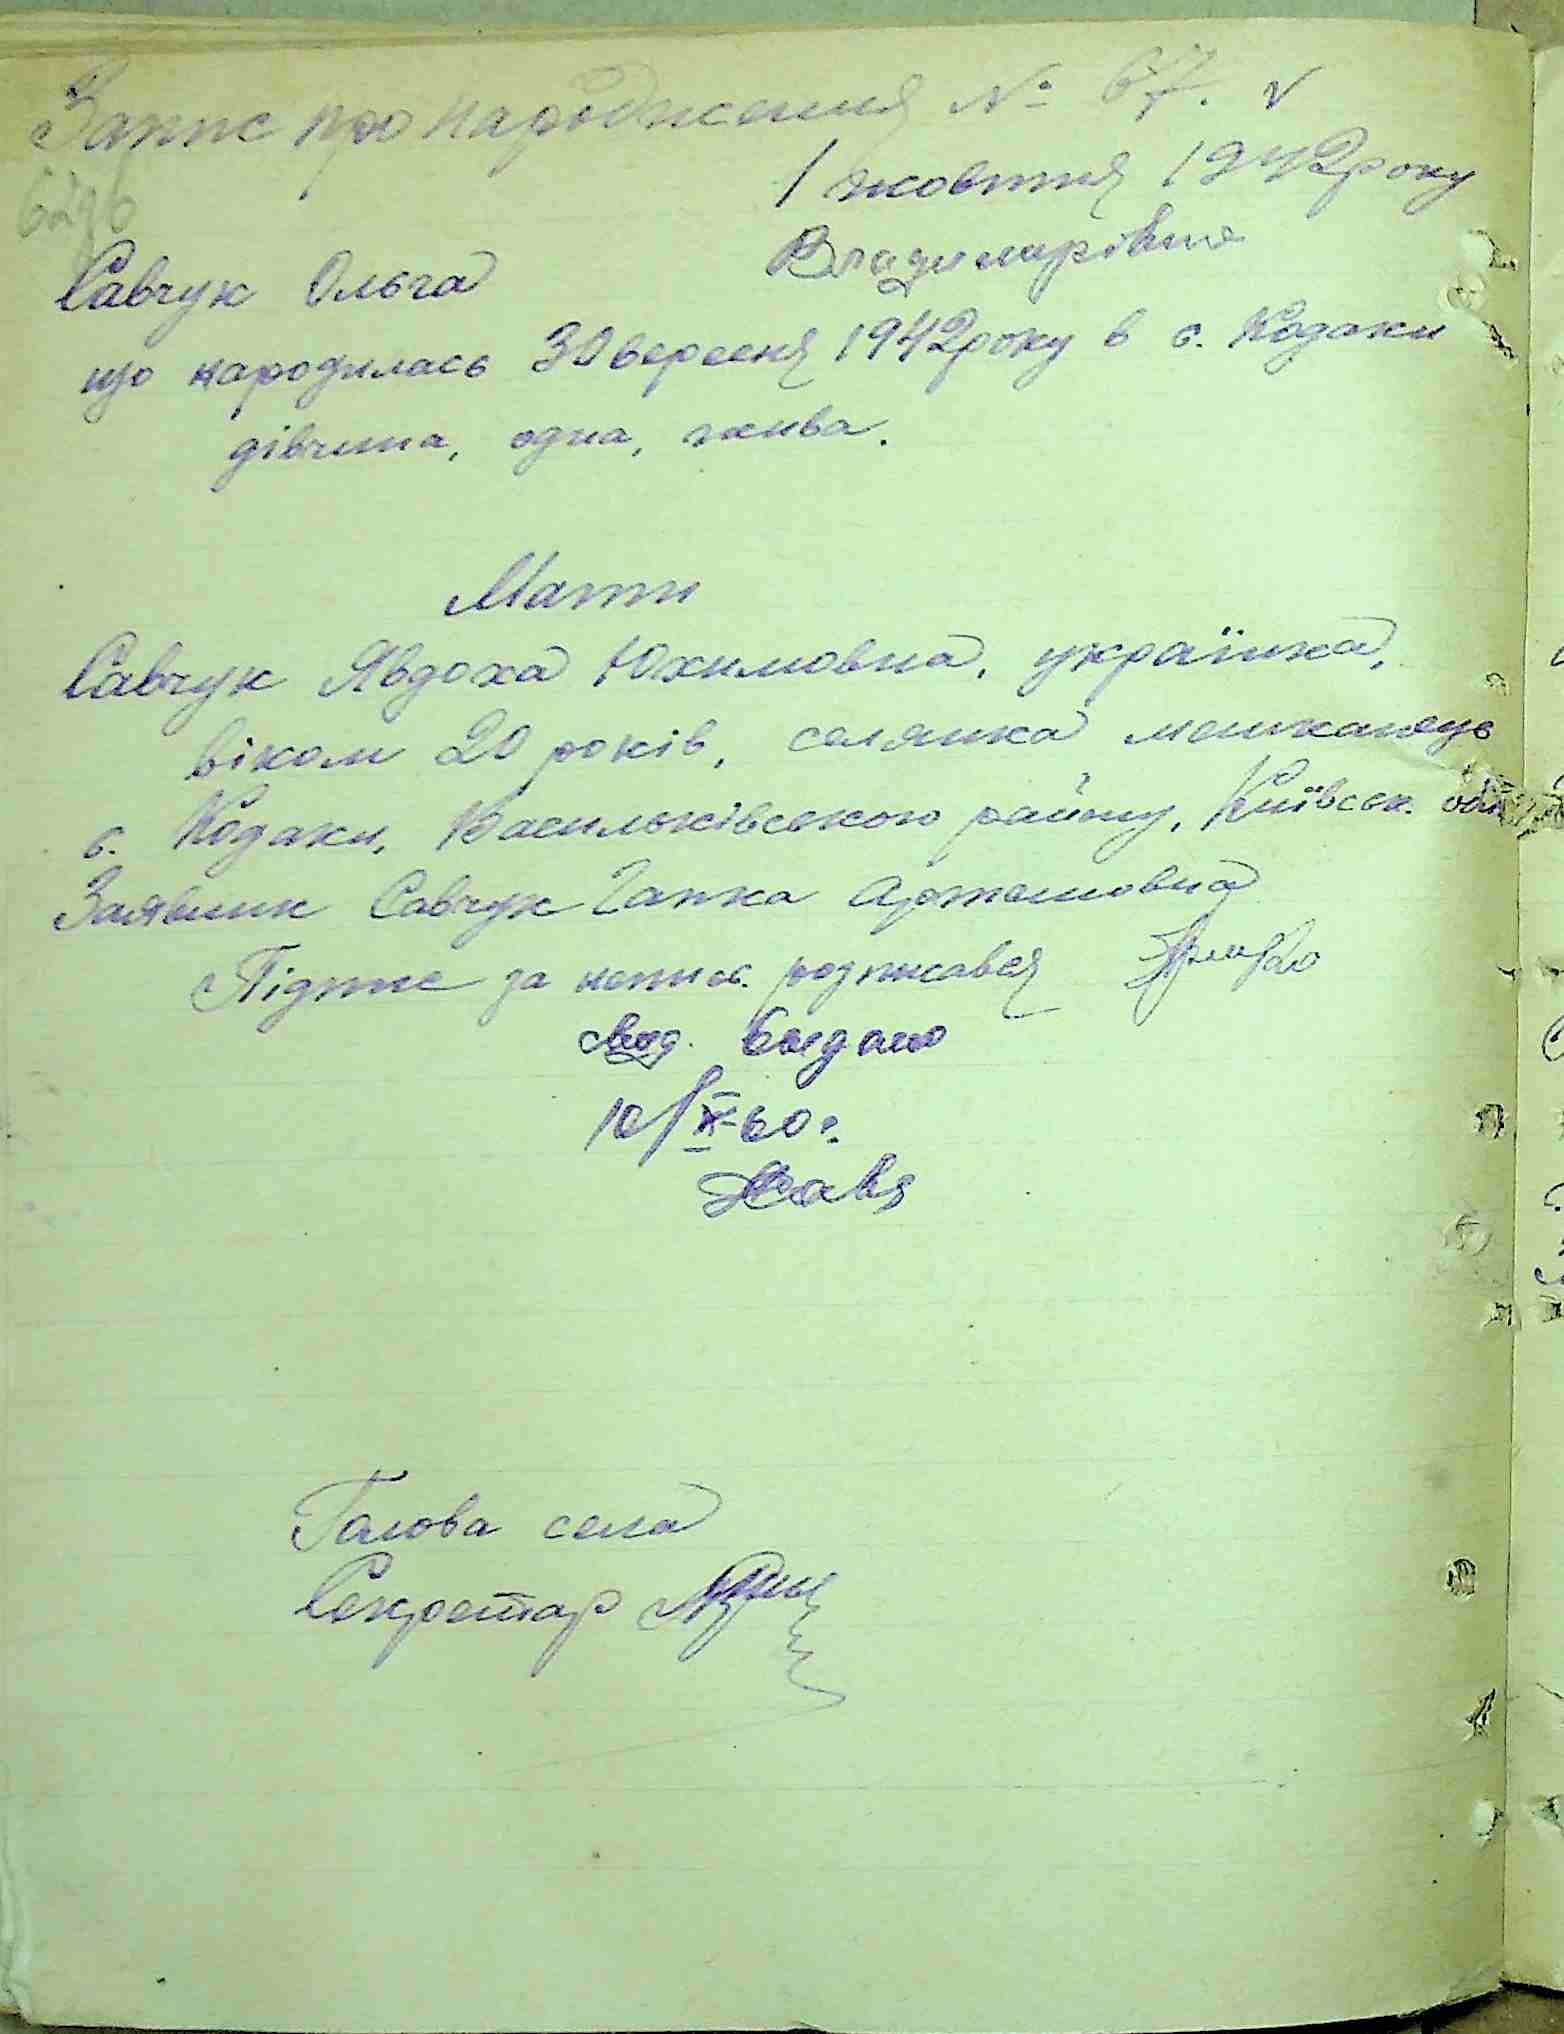 Запис про народження № 67. v
1 жовтня 1942 року
Савчук Ольга Владимирівна
що народилась 30 вересня 1942 року в с. Кодаки
дівчина, одна, жива.
Мати
Савчук Явдоха Юхимовна, українка,
віком 20 років, селянка мешканець
с. Кодаки, Васильківського району, Київськ. обл
Заявник Савчук Гапка Артемовна
Підпис за непис. розписався
выдано
10/IX-60 г.
Голова села
Секретар